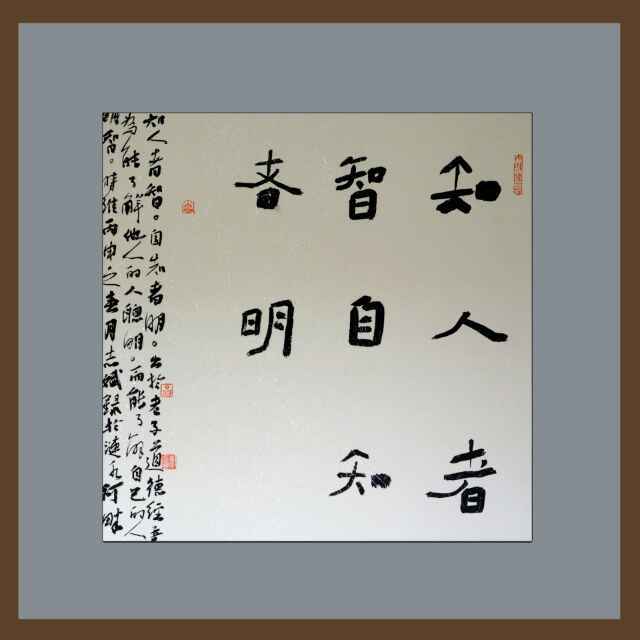 知人者
智自知
者明
知人者智。自知者明。出於老子道德经意
为能了解他人的人聰明。而能了解自己的人
明智。時維丙申之春月志斌錄於漣水河畔